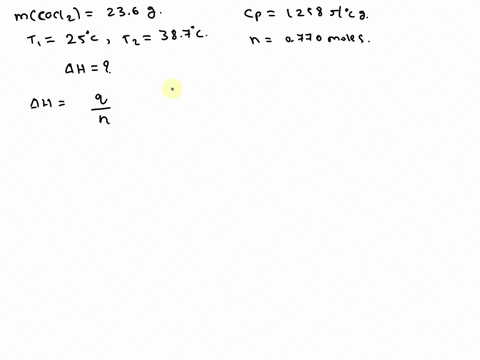 m(COCl2) = 23.6 g.
Cp = 1.258 J/°C g.
T1 = 25°C, T2 = 38.7°C.
n = 0.770 moles.
ΔH = ?
ΔH = q
n